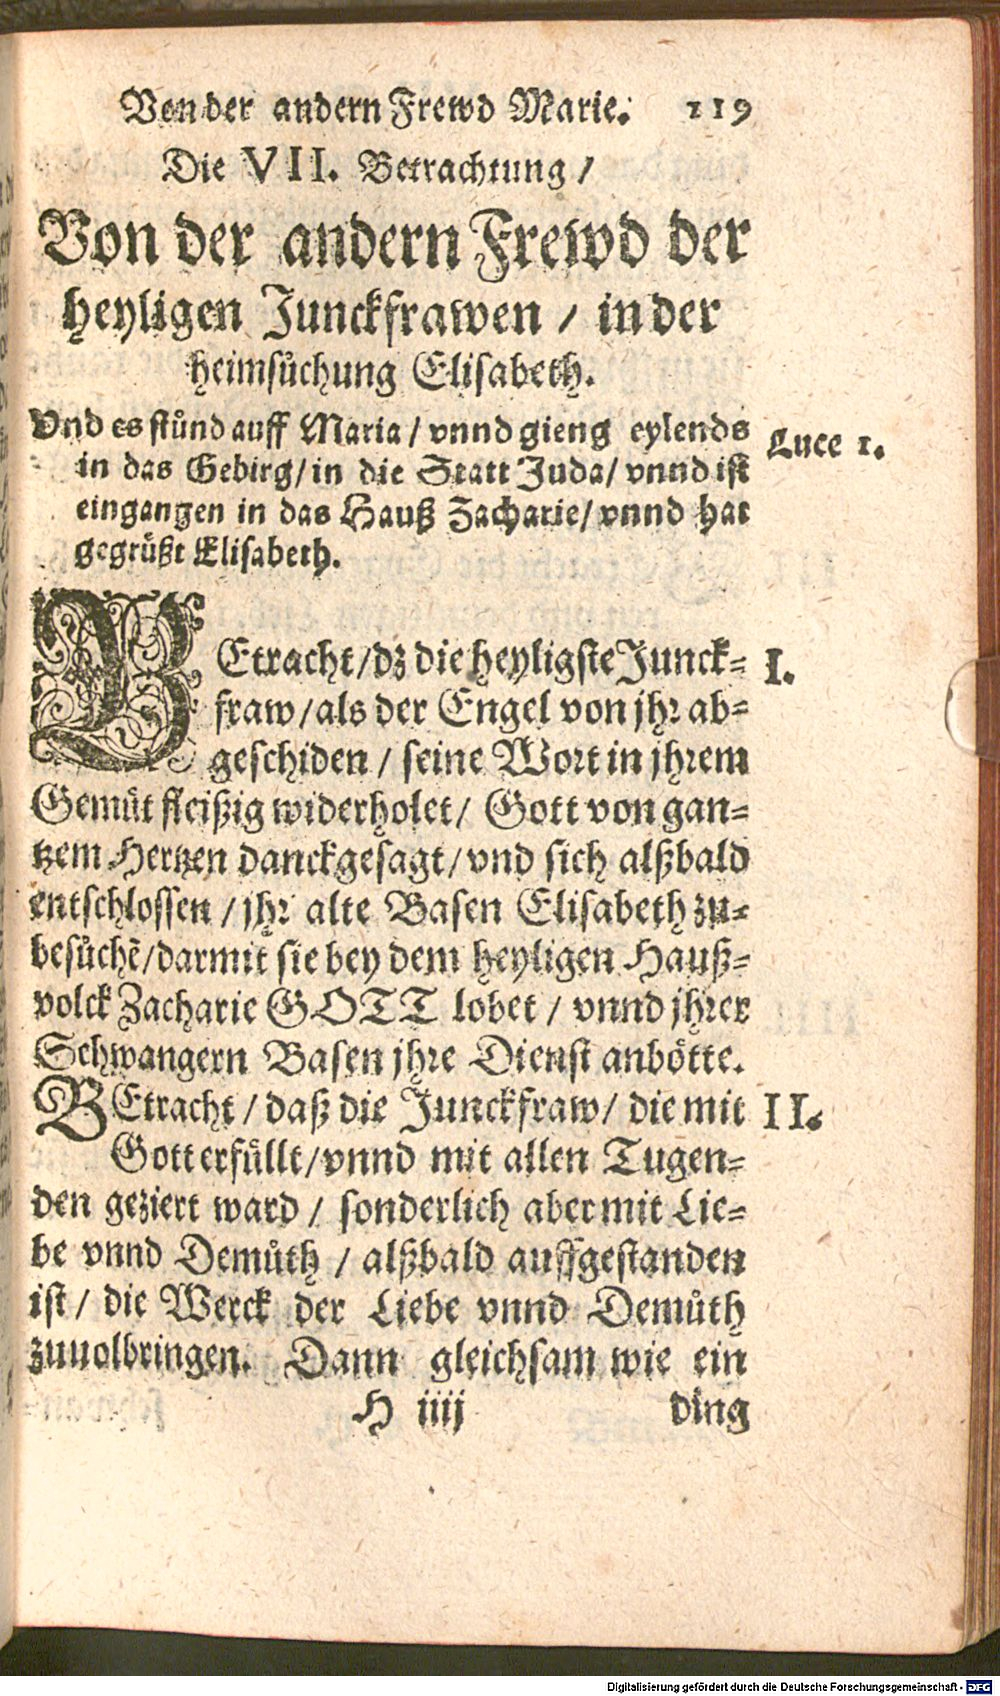 Von der andern Frewd Marie. 119
Die VII. Betrachtung /
Von der andern Frewd der
heyligen Junckfrawen / in der
heimsůchung Elisabeth.
Vnd es stůnd auff Maria / vnnd gieng eylends
in das Gebirg / in die Statt Juda / vnnd ist
eingangen in das Hauß Zacharie / vnnd hat
gegrůßt Elisabeth.
Luce 1.
BEtracht / dz die heyligste Junck-
fraw / als der Engel von jhr ab-
geschiden / seine Wort in jhrem
Gemůt fleißig widerholet / Gott von gan-
tzem Hertzen danckgesagt / vnd sich alßbald
entschlossen / jhr alte Basen Elisabeth zu-
besůchẽ / darmit sie bey dem heyligen Hauß-
volck Zacharie GOTT lobet / vnnd jhrer
Schwangern Basen jhre Dienst anbötte.
I.
BEtracht / daß die Junckfraw / die mit
Gott erfüllt / vnnd mit allen Tugen-
den geziert ward / sonderlich aber mit Lie-
be vnnd Demůth / alßbald auffgestanden
ist / die Werck der Liebe vnnd Demůth
zuuolbringen. Dann gleichsam wie ein
II.
H iiij ding
Digitalisierung gefördert durch die Deutsche Forschungsgemeinschaft - DFG